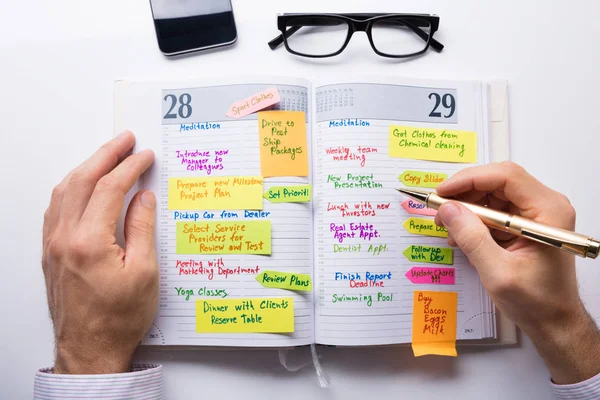 28
Sport Clothes
Meditation
Drive to
Post
Ship
Packages
Introduce new
manager to
colleagues
Prepare new Milestone
Project Plan
Set Prioriti
Pickup Car from Dealer
Select Service
Providers for
Review and Test
Meeting with
Marketing Department
Review Plans
Yoga Classes
Dinner with Clients
Reserve Table
29
Meditation
Get Clothes from
Chemical cleaning
Weekly team
meeting
New Project
Presentation
Copy Slides
Lunch with new
Investors
Resor
Real Estate
Agent Appt.
Prepare Do
Dentist Appt.
Follow up
with Dev
Finish Report
Deadline
Update CHTS
Swimming Pool
Buy
Bacon
Eggs
Milk